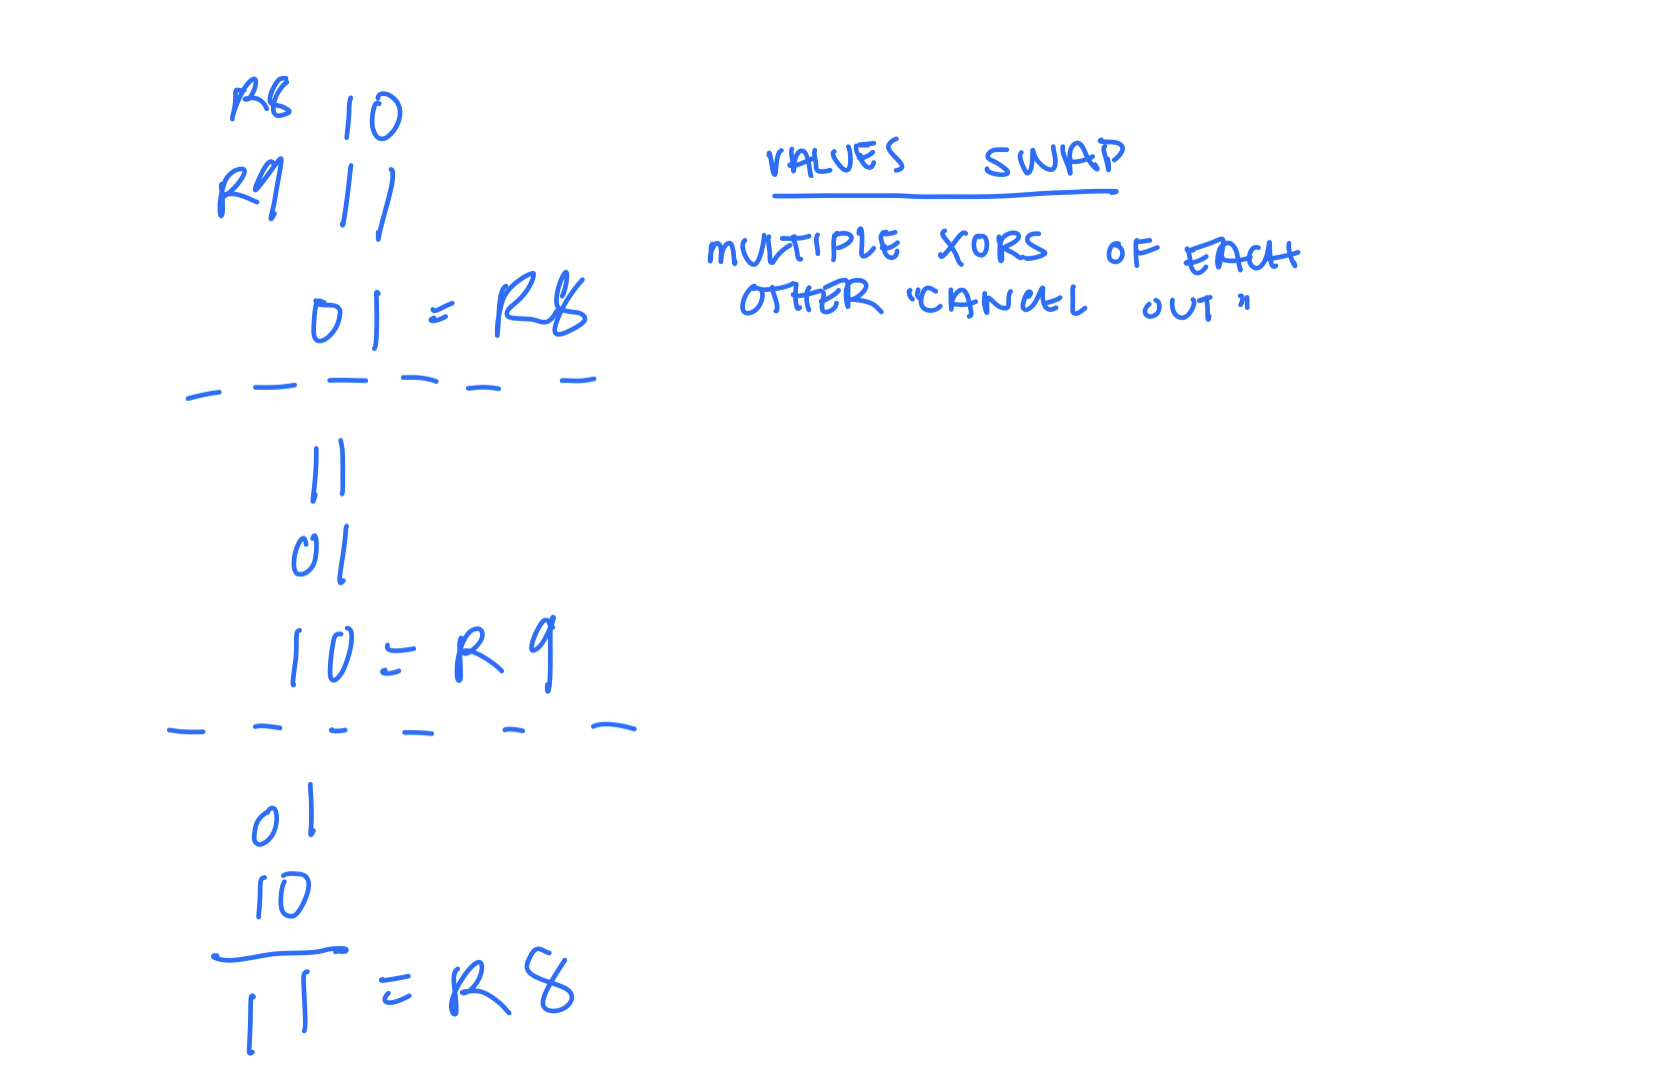 R8 10
R9 11
01 = R8
11
01
10 = R9
01
10
11 = R8
VALUES SWAP
MULTIPLE XORS OF EACH
OTHER "CANCEL OUT"